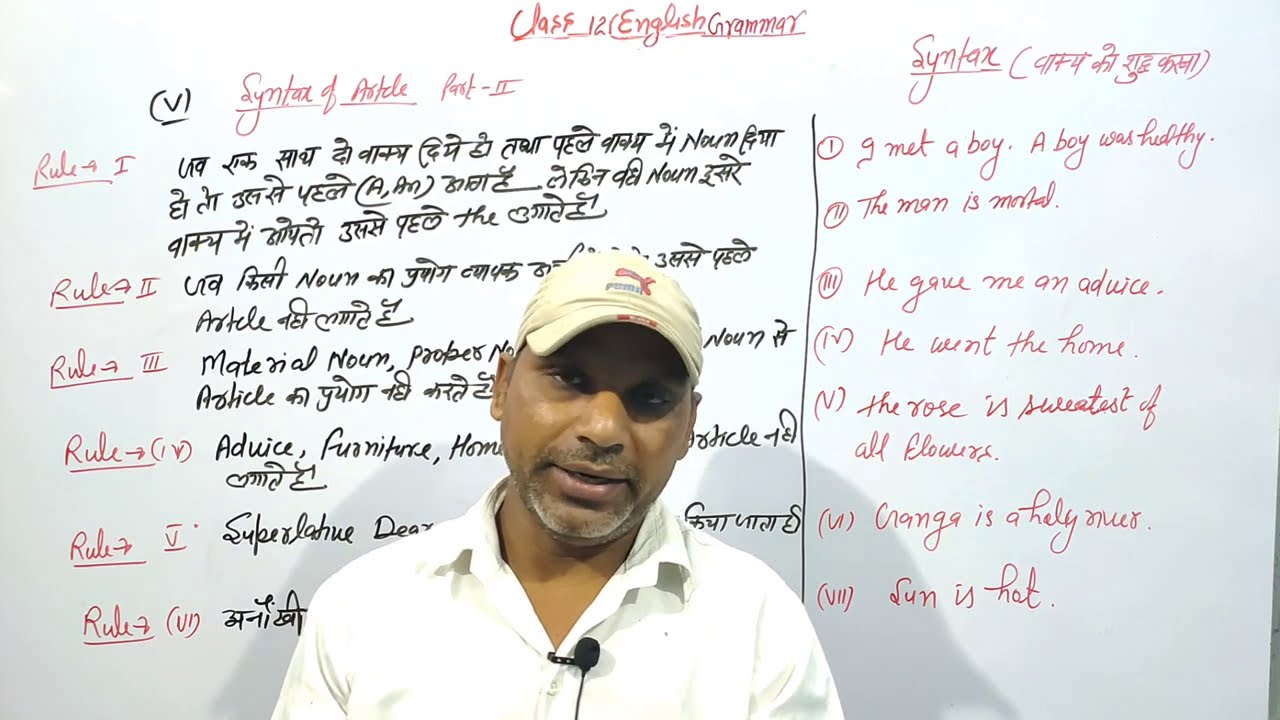 Class 12 English Grammar
(V) Syntax of Artcle Part-II
Rule→ I जब एक साथ दो वाक्य दिये हो तथा पहले वाक्य में Noun दिया
हो तो उससे पहले (A, An) आता है लेकिन वही Noun दूसरे
वाक्य में आये तो उससे पहले the लगाते हैं
Rule→ II जब किसी Noun का प्रयोग व्यापक उससे पहले
Article नही लगाते हैं
Rule→ III Material Noun, Proper Noun से
Article का प्रयोग नही करते हैं
Rule→ (iv) Advice, Furniture, Home Article नही
लगाते हैं
Rule→ V Superlative किया जाता है
Rule→ (VI) अनोखी
Syntax (वाक्य को शुद्ध करना)
I I met a boy. A boy was healthy.
II The man is mortal.
III He gave me an advice.
(IV) He went the home.
(V) the rose is sweatest of
all flowers.
(VI) Ganga is a holy river.
(VII) Sun is hot.
PUMA